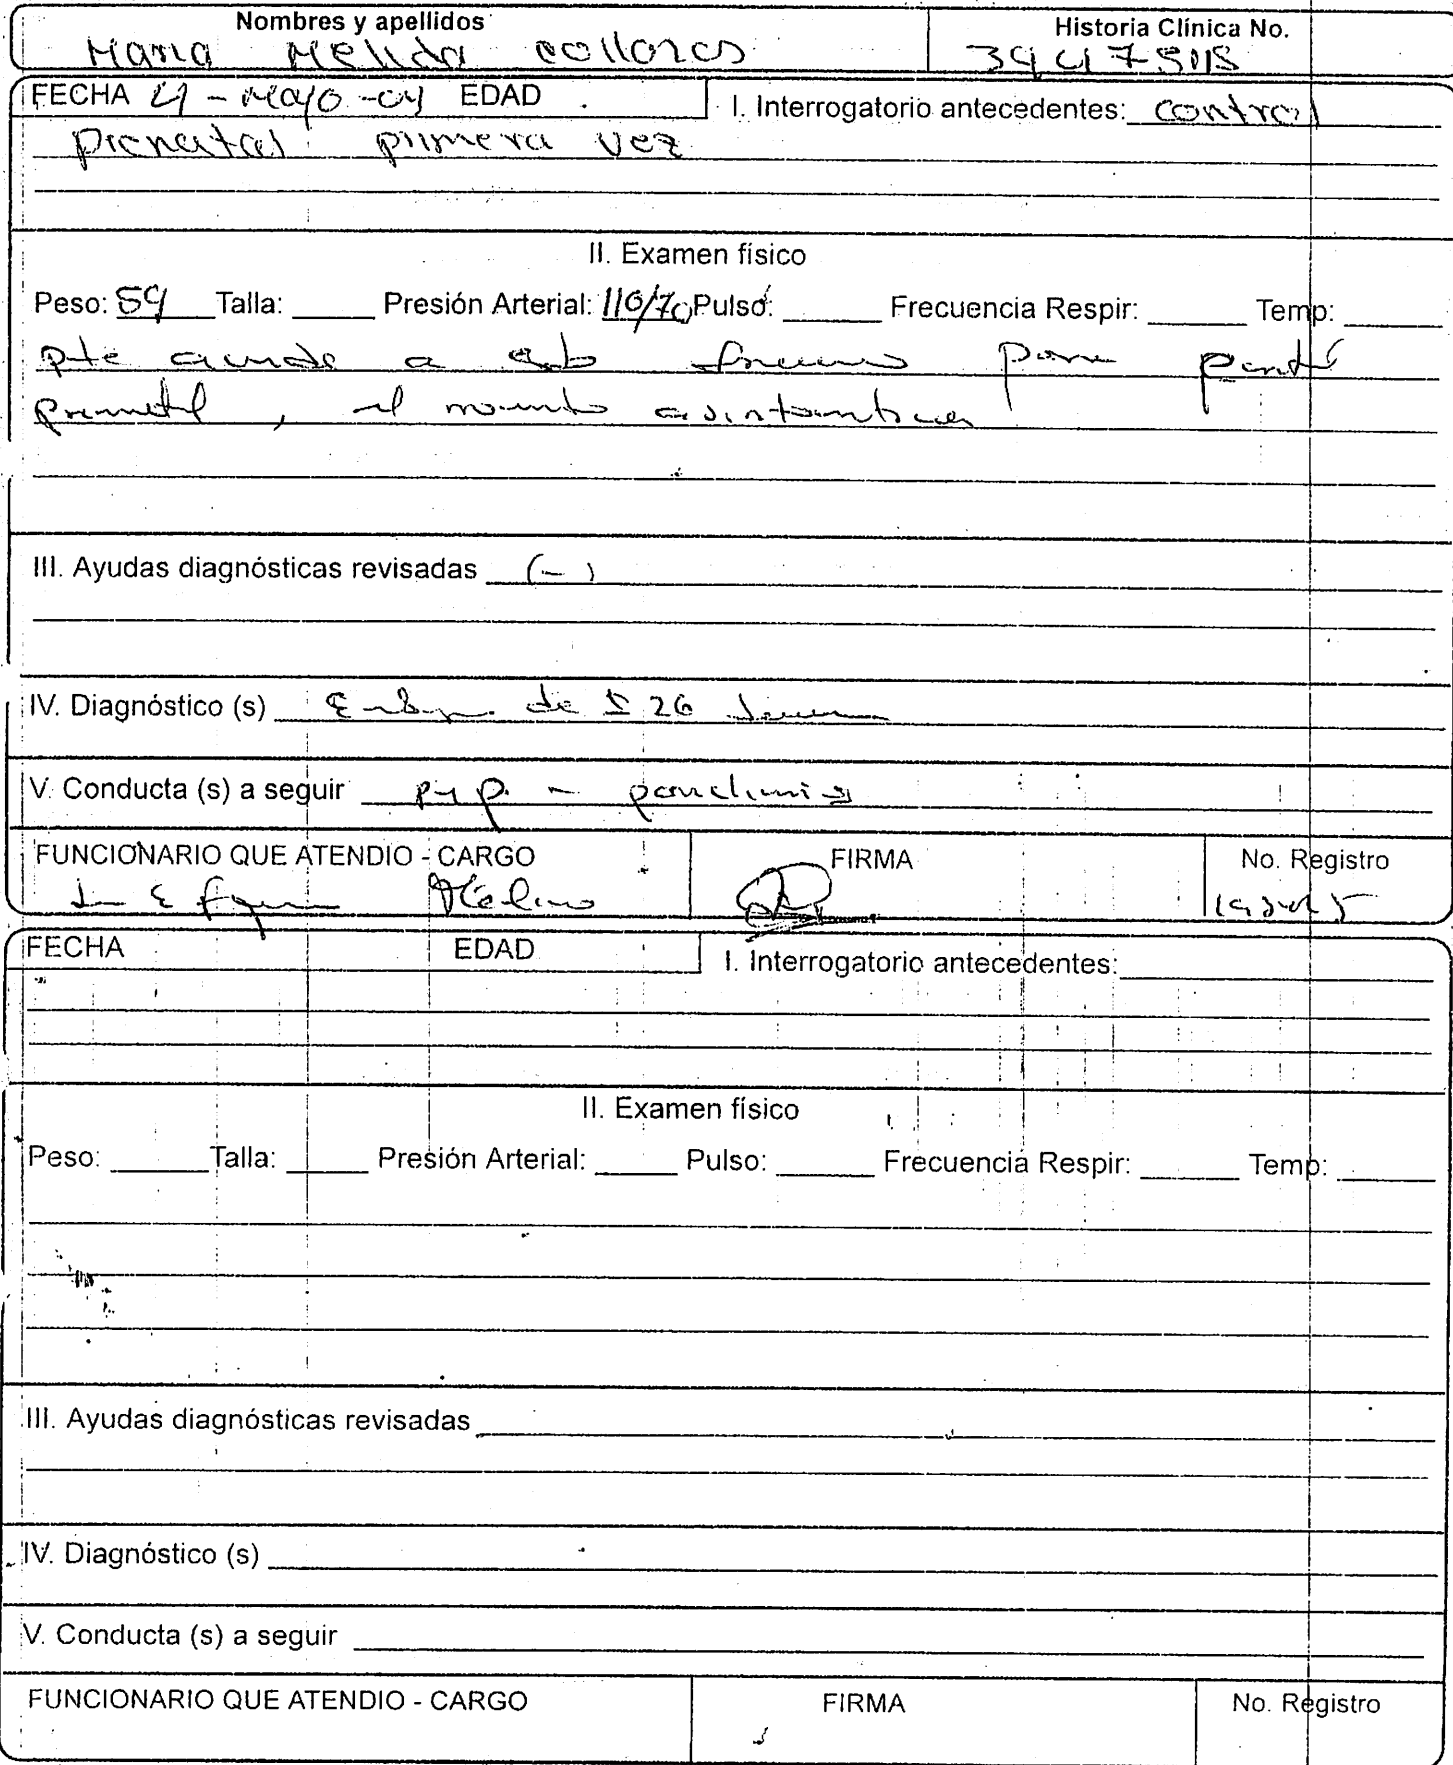 Nombres y apellidos
Historia Clínica No.
Maria Melida collazos
FECHA 4-Mayo-04 EDAD I. Interrogatorio antecedentes: control
prenatal primera vez
II. Examen físico
Peso: 59 Talla: Presión Arterial: 110/70 Pulso: Frecuencia Respir: Temp:
pte acude a para
, al momento asintomatica
III. Ayudas diagnósticas revisadas (-)
IV. Diagnóstico (s) de 26
V. Conducta (s) a seguir pyp - paraclinicos
FUNCIONARIO QUE ATENDIO - CARGO FIRMA No. Registro
FECHA EDAD I. Interrogatorio antecedentes:
II. Examen físico
Peso: Talla: Presión Arterial: Pulso: Frecuencia Respir: Temp:
III. Ayudas diagnósticas revisadas
IV. Diagnóstico (s)
V. Conducta (s) a seguir
FUNCIONARIO QUE ATENDIO - CARGO FIRMA No. Registro